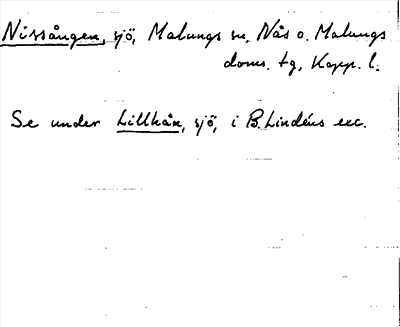 Nissången, sjö, Malungs sn, Nås o. Malungs
doms. tg, Kopp. l.
Se under Lillkån, sjö, i B. Lindéns exc.